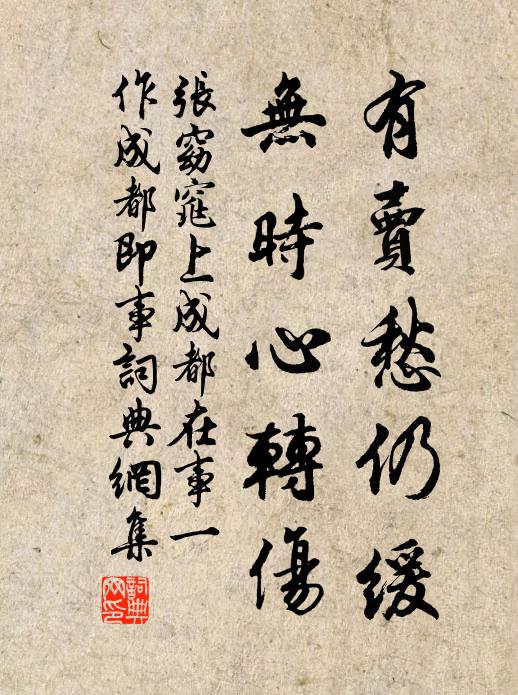 有賣愁仍緩
無時心轉傷
張窈窕上成都在事一
作成都即事詞典網集
詞典
网印